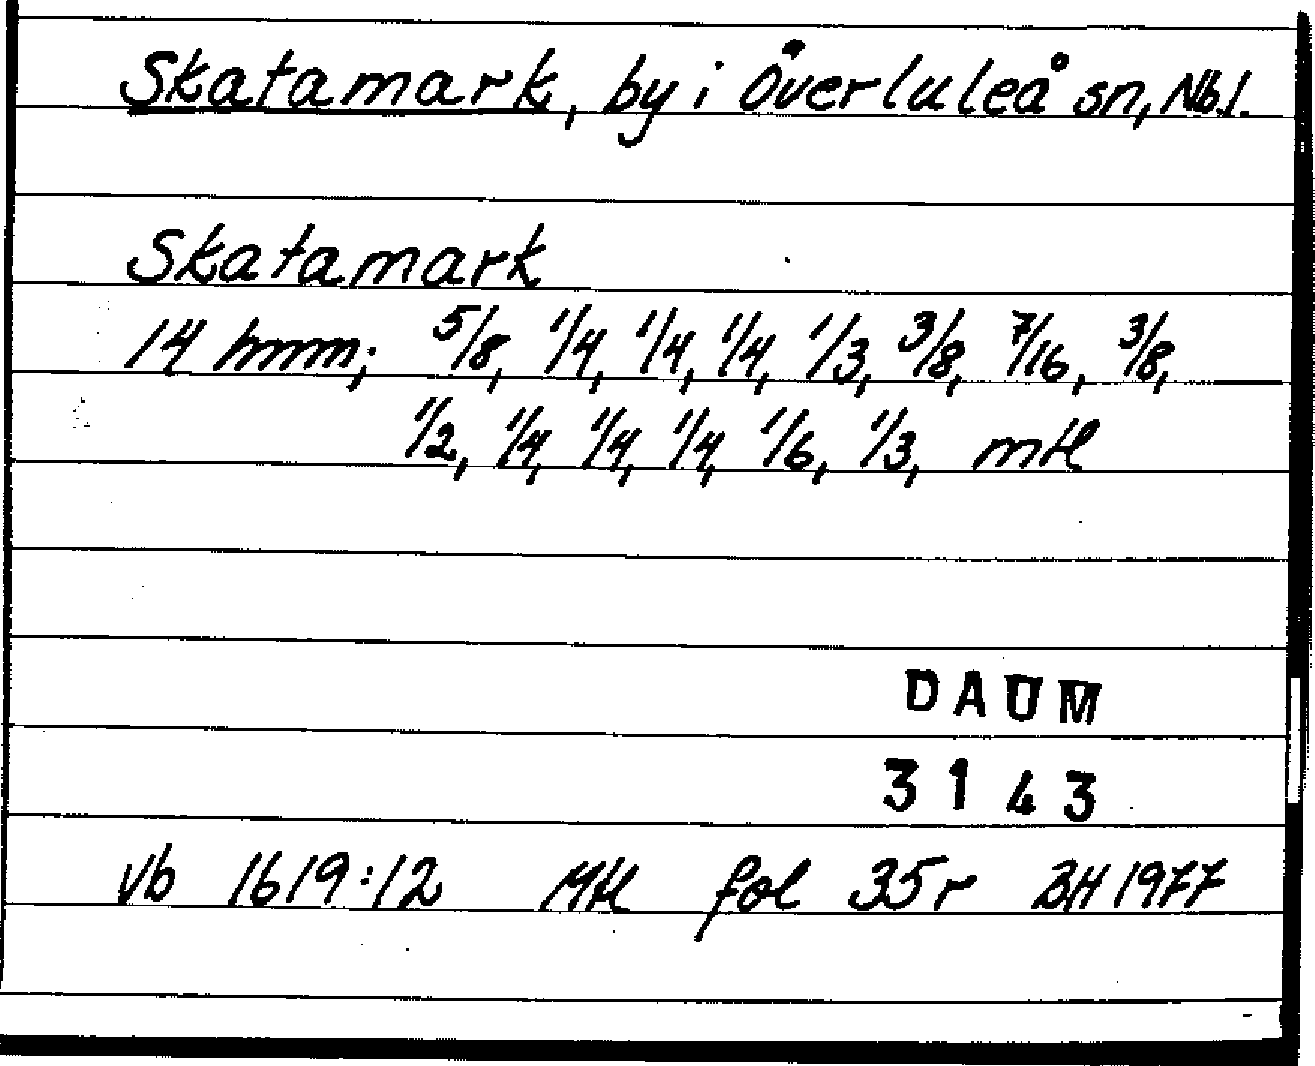 Skatamark, by i Överluleå sn, Nb l.
Skatamark
14 hmm; 5/8, 1/4, 1/4, 1/4, 1/3, 3/8, 7/16, 3/8,
1/2, 1/4, 1/4, 1/4, 1/6, 1/3, mtl
DAUM
3143
Vb 1619:12 Mtl fol 35r BH 1977